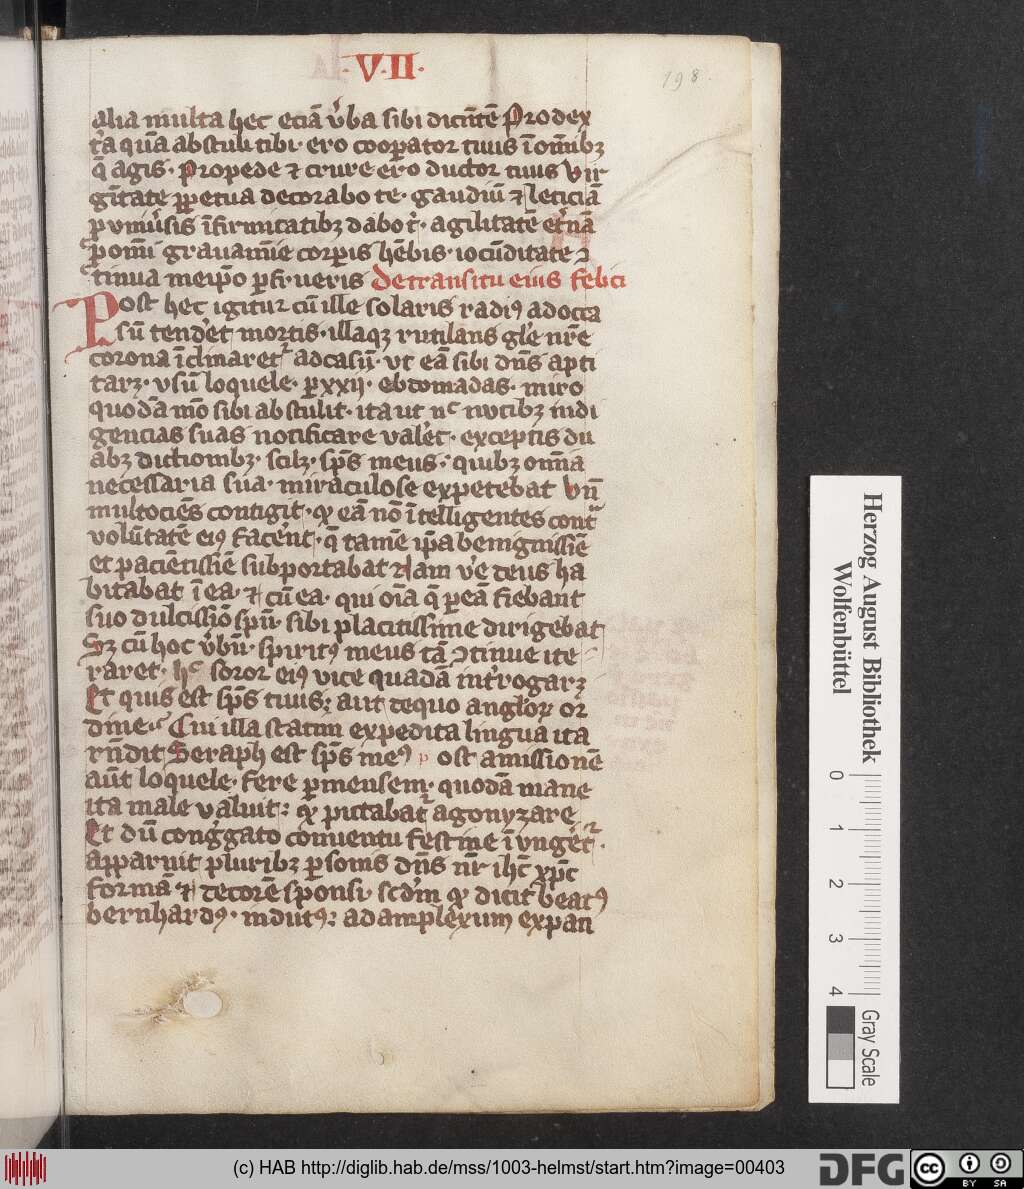 ·V·II·
198
alia multa hec eciā v̓ba sibi dicn̄tē Prodex
t̓a quā abstuli tibi· ero coop̄ator tuus ī om̄ibꝫ
q̄ agis· Propede ⁊ crure ero ductor tuus Vir
gīntate ꝑpetua decorabo te· gaudiū ⁊ leticiā
ꝓ infirmitatibꝫ dabo t̓· agilitatē et̓nā
ꝓ om̄i grauamīe corꝑis hēbis· iocūditate ꝯ
tinua meip̄o ꝑfrueris De transitu eius felici
Post hec igitur cū ille solaris radiꝰ ad occa
sū tend̓et mortis· illaqꝫ rutilans gl̓e nr̄e
corona īclinaret᷑ ad casū· vt eā sibi dn̄s apti
tarꝫ· vsū loquele· ꝑ xxij· ebdomadas· miro
quodā mō sibi abstulit· ita ut nᶜ nutibꝫ indi
gencias suas notificare val̓et· exceptis du
abꝫ dictiombꝫ· scilꝫ· sp̄s meus· quibꝫ om̄ia
necessaria sua· miraculose expetebat Vn̄
multociēs contigit· ꝙ eā nō ītelligentes contᷓ
volūtatē eiꝰ facer̄nt· q̄ tamē ip̄a benignissīe
et paciētissīe subportabat Nam v̓e deus ha
bitabat ī ea· ⁊ cū ea· qui oīa q̄ ꝑ eā fiebant
suo dulcissīo sp̄u· sibi placitissime dirigebat
Sꝫ cū hoc v̓bū· spiritꝰ meus tā ꝯtinue ite
raret· hᶜ soror eiꝰ vice quadā int̓rogarꝫ
Et quis est sp̄s tuus: aut de quo anglorꝝ or
dine· Cui illa statim expedita lingua ita
rn̄dit Seraph est sp̄s meꝰ post amissionē
aūt loquele· fere ꝑ mensem· quodā mane
ita male valuit: ꝙ putabat᷑ agonyzare
Et dū cong̓gato conuentu festine ī vnger̄et᷑·
apparuit pluribꝫ ꝑsonis dn̄s nr̄ ih̄c xp̄c
formā ⁊ decorē sponsi· scd̓m ꝙ dicit beatꝰ
bernhardꝰ· indutꝰ: ad amplexum expan
Herzog August Bibliothek
Wolfenbüttel
0 1 2 3 4
Gray Scale
(c) HAB http://diglib.hab.de/mss/1003-helmst/start.htm?image=00403
DFG
cc BY SA